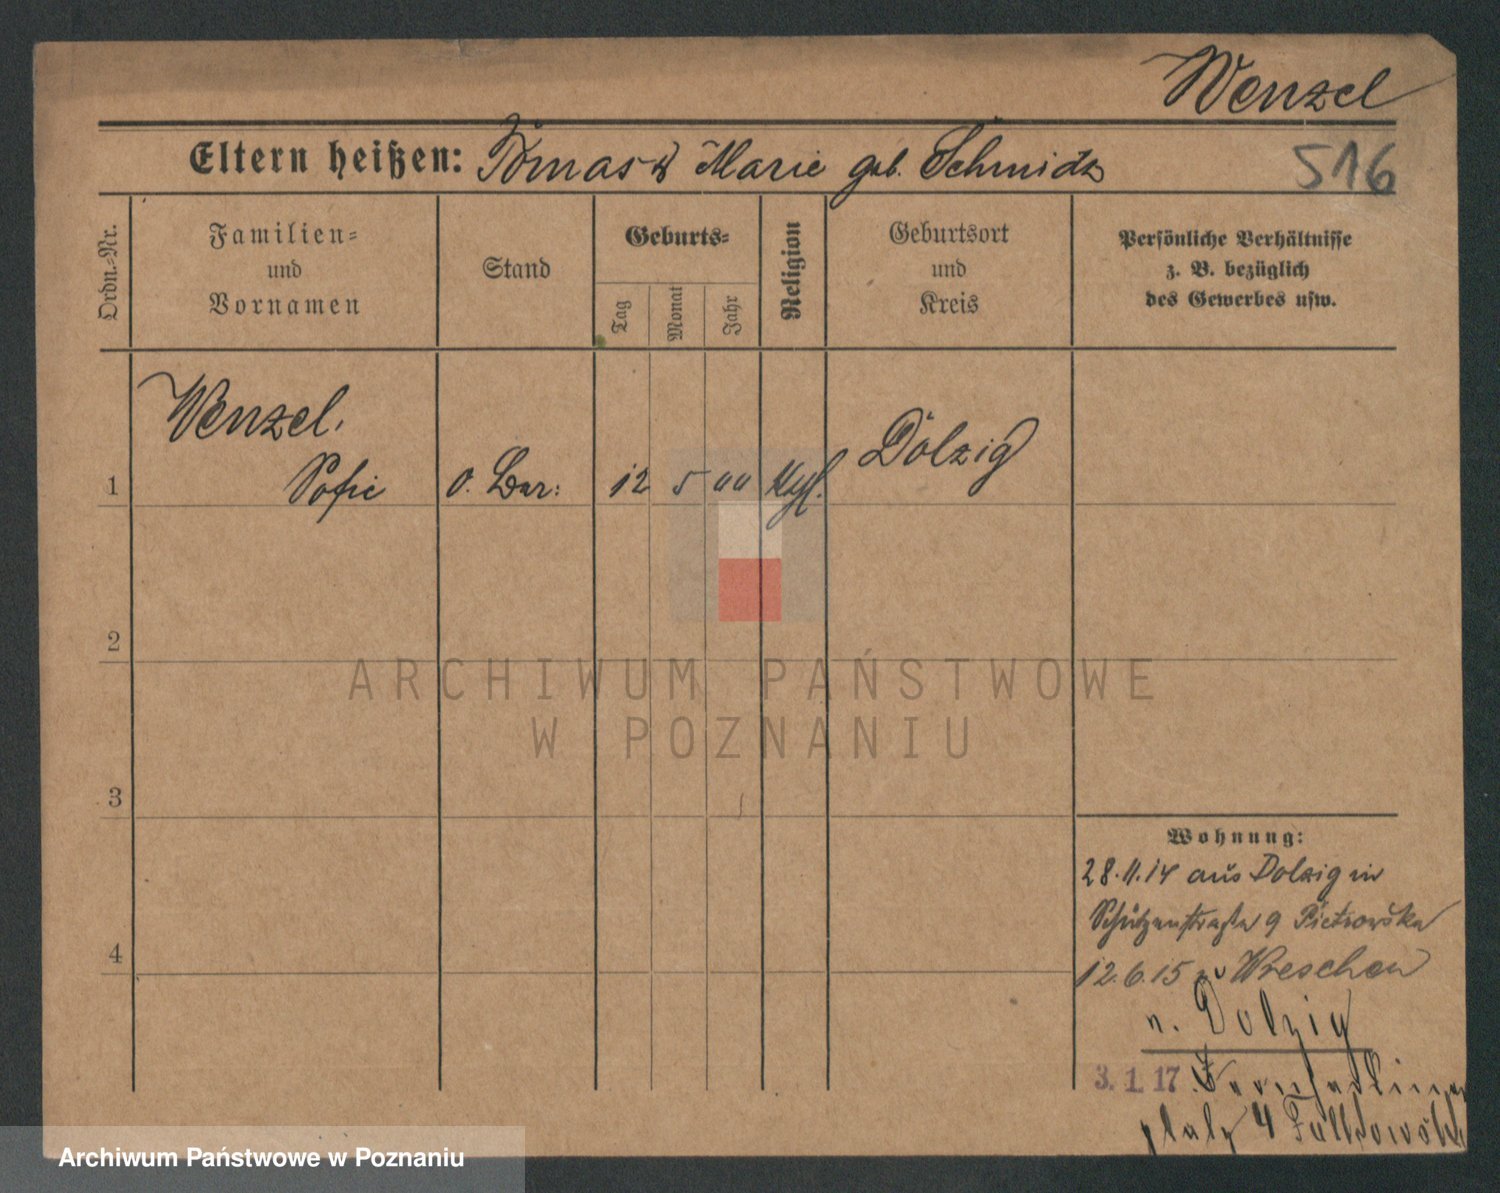 Wenzel
Eltern heißen: Tomas u Marie geb. Schmidt
516
Ordn.-Nr.
Familien-
und
Vornamen
Stand
Geburts-
Tag
Monat
Jahr
Religion
Geburtsort
und
Kreis
Persönliche Verhältnisse
z. B. bezüglich
des Gewerbes usw.
Wenzel.
1 Sofie 12 5 00 Dolzig
2
3
4
Wohnung:
28.11.14 aus Dolzig in
Schützenstraße 9 Pietrowska
12.6.15 n Wreschen
n. Dolzig
3. 1. 17
platz 4
ARCHIWUM PAŃSTWOWE
W POZNANIU
Archiwum Państwowe w Poznaniu